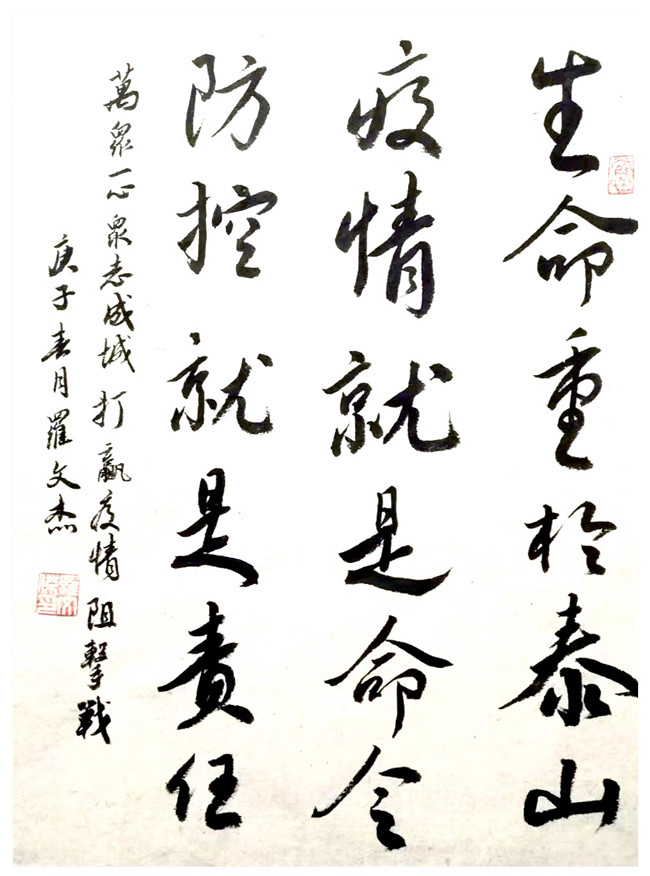 生命重於泰山
疫情就是命令
防控就是责任
萬眾一心眾志成城打赢疫情阻擊戰
庚子春月羅文杰